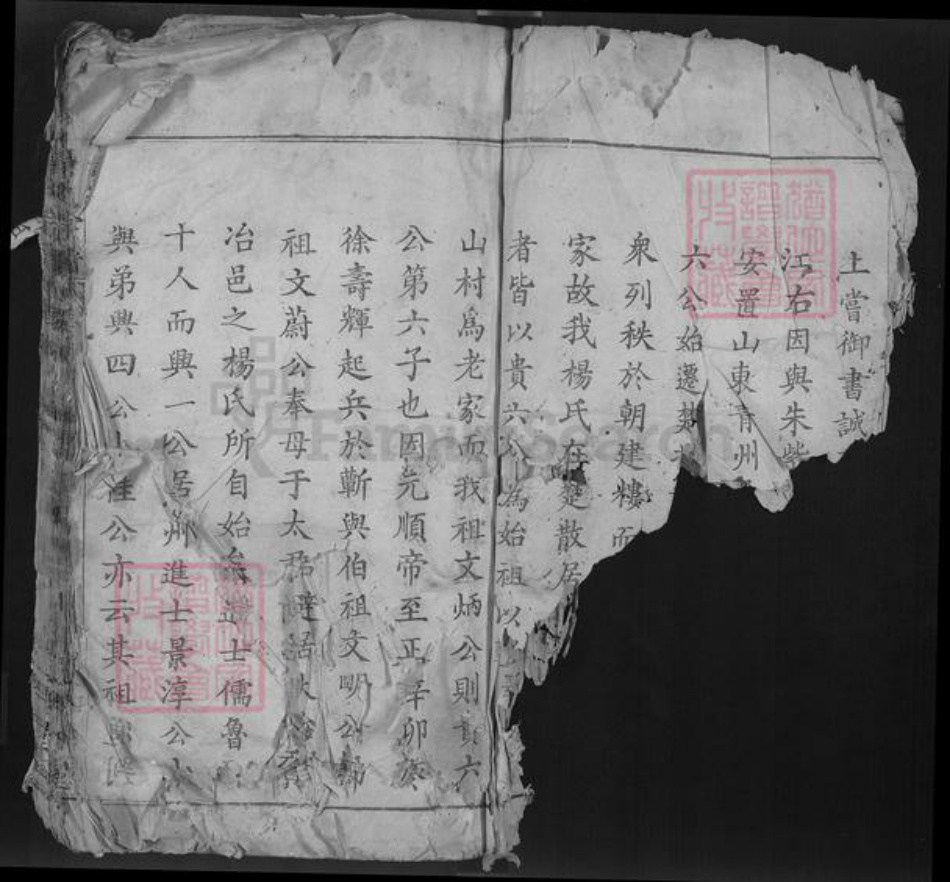 上嘗御書誠
江右因與朱紫
安置山東青州
六公始遷楚
衆列秩於朝建樓而
家故我楊氏在楚散居
者皆以貴六公為始祖以
山村爲老家而我祖文炳公則貴六
公第六子也因元順帝至正辛卯
徐壽輝起兵於蘄與伯祖文明公
祖文蔚公奉母于太君避
冶邑之楊氏所自始矣進士儒魯
十人而興一公居 進士景淳公
與弟興四公 公亦云其祖興
FamilySearch